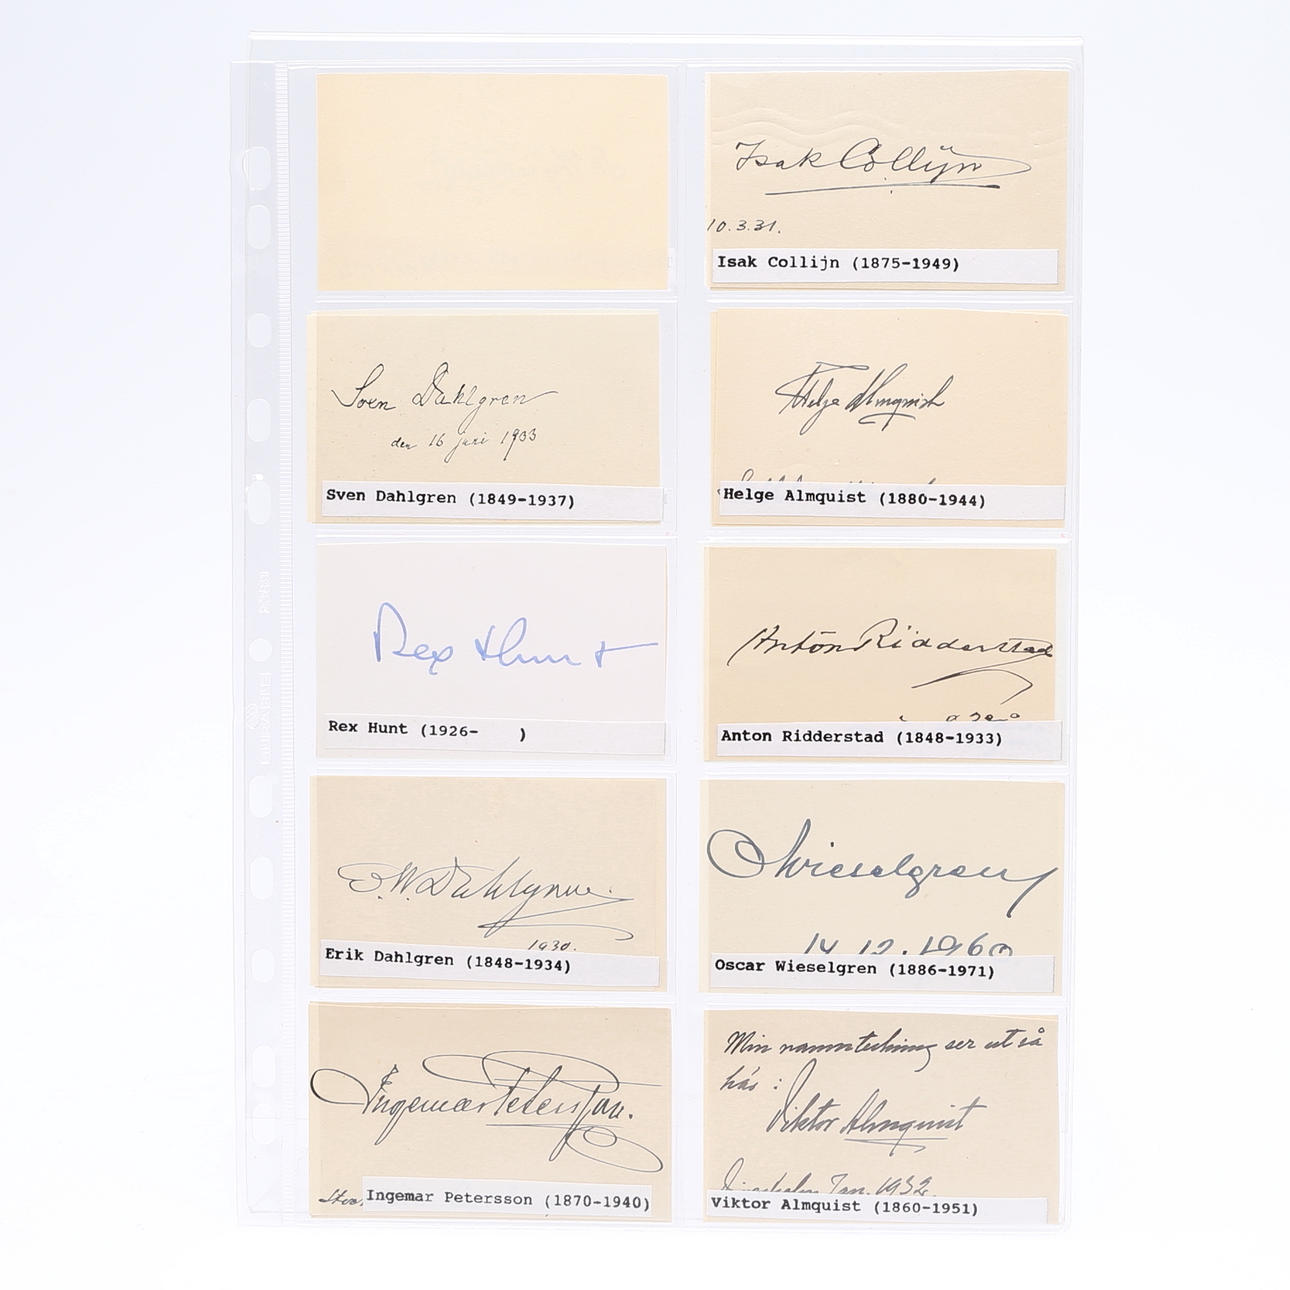 Isak Collijn
10.3.31.
Isak Collijn (1875-1949)
Sven Dahlgren
den 16 juni 1933
Sven Dahlgren (1849-1937)
Helge Almquist
Helge Almquist (1880-1944)
Rex Hunt
Rex Hunt (1926-    )
Anton Ridderstad
Anton Ridderstad (1848-1933)
E.W. Dahlgren.
1930.
Erik Dahlgren (1848-1934)
O Wieselgren
14 12. 1960
Oscar Wieselgren (1886-1971)
Ingemar Petersson.
Ingemar Petersson (1870-1940)
Min namnteckning ser ut så
här:
Viktor Almquist
Jan. 1932.
Viktor Almquist (1860-1951)